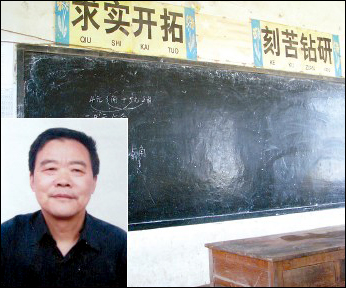 求实开拓
QIU SHI KAI TUO
刻苦钻研
KE KU ZUAN YAN